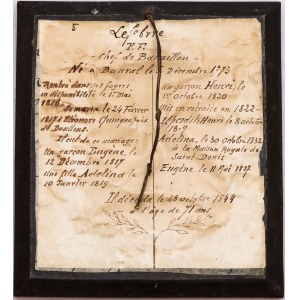 5
Lefebvre
P. F.
Chef de Bataillon
Né à Bauval le 5 Décembre 1773
Rentré dans ses foyers
en disponibilité le 1er Mai
1816
Se maria le 24 Février
1817 à Eléonore
de Doullens.
Il eut de ce mariage
Un garçon Eugène, le
12 Décembre 1817
Une fille Adelina le
10 Janvier 1819
Un garçon Henri, le
1er Octobre 1820
Mis en retraite en 1822
Il perdit Henri le 8 Octobre
Adelina, le 30 Octobre 1832
à la Maison Royale de
Saint Denis
Eugène le 11 Mai 1837
Il décéda le 23 octobre 1844
à l'âge de 71 ans